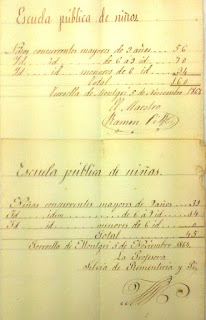 Escuela pública de niños
Niños concurrentes mayores de 9 años... 56
Id. id. de 6 a 9 id. 70
Id. id. menores de 6 id. 34
Total 160
Torroella de Montgrí 5 de Noviembre 1863
El Maestro
Ramon
Escuela pública de niñas.
Niñas concurrentes mayores de 9 años
Id idem de 6 a 9 id. 14
Id id menores de 6 id. 0
Total 45
Torroella de Montgrí 5 de Noviembre 1863.
La Profesora
Silvia de Rementeria y